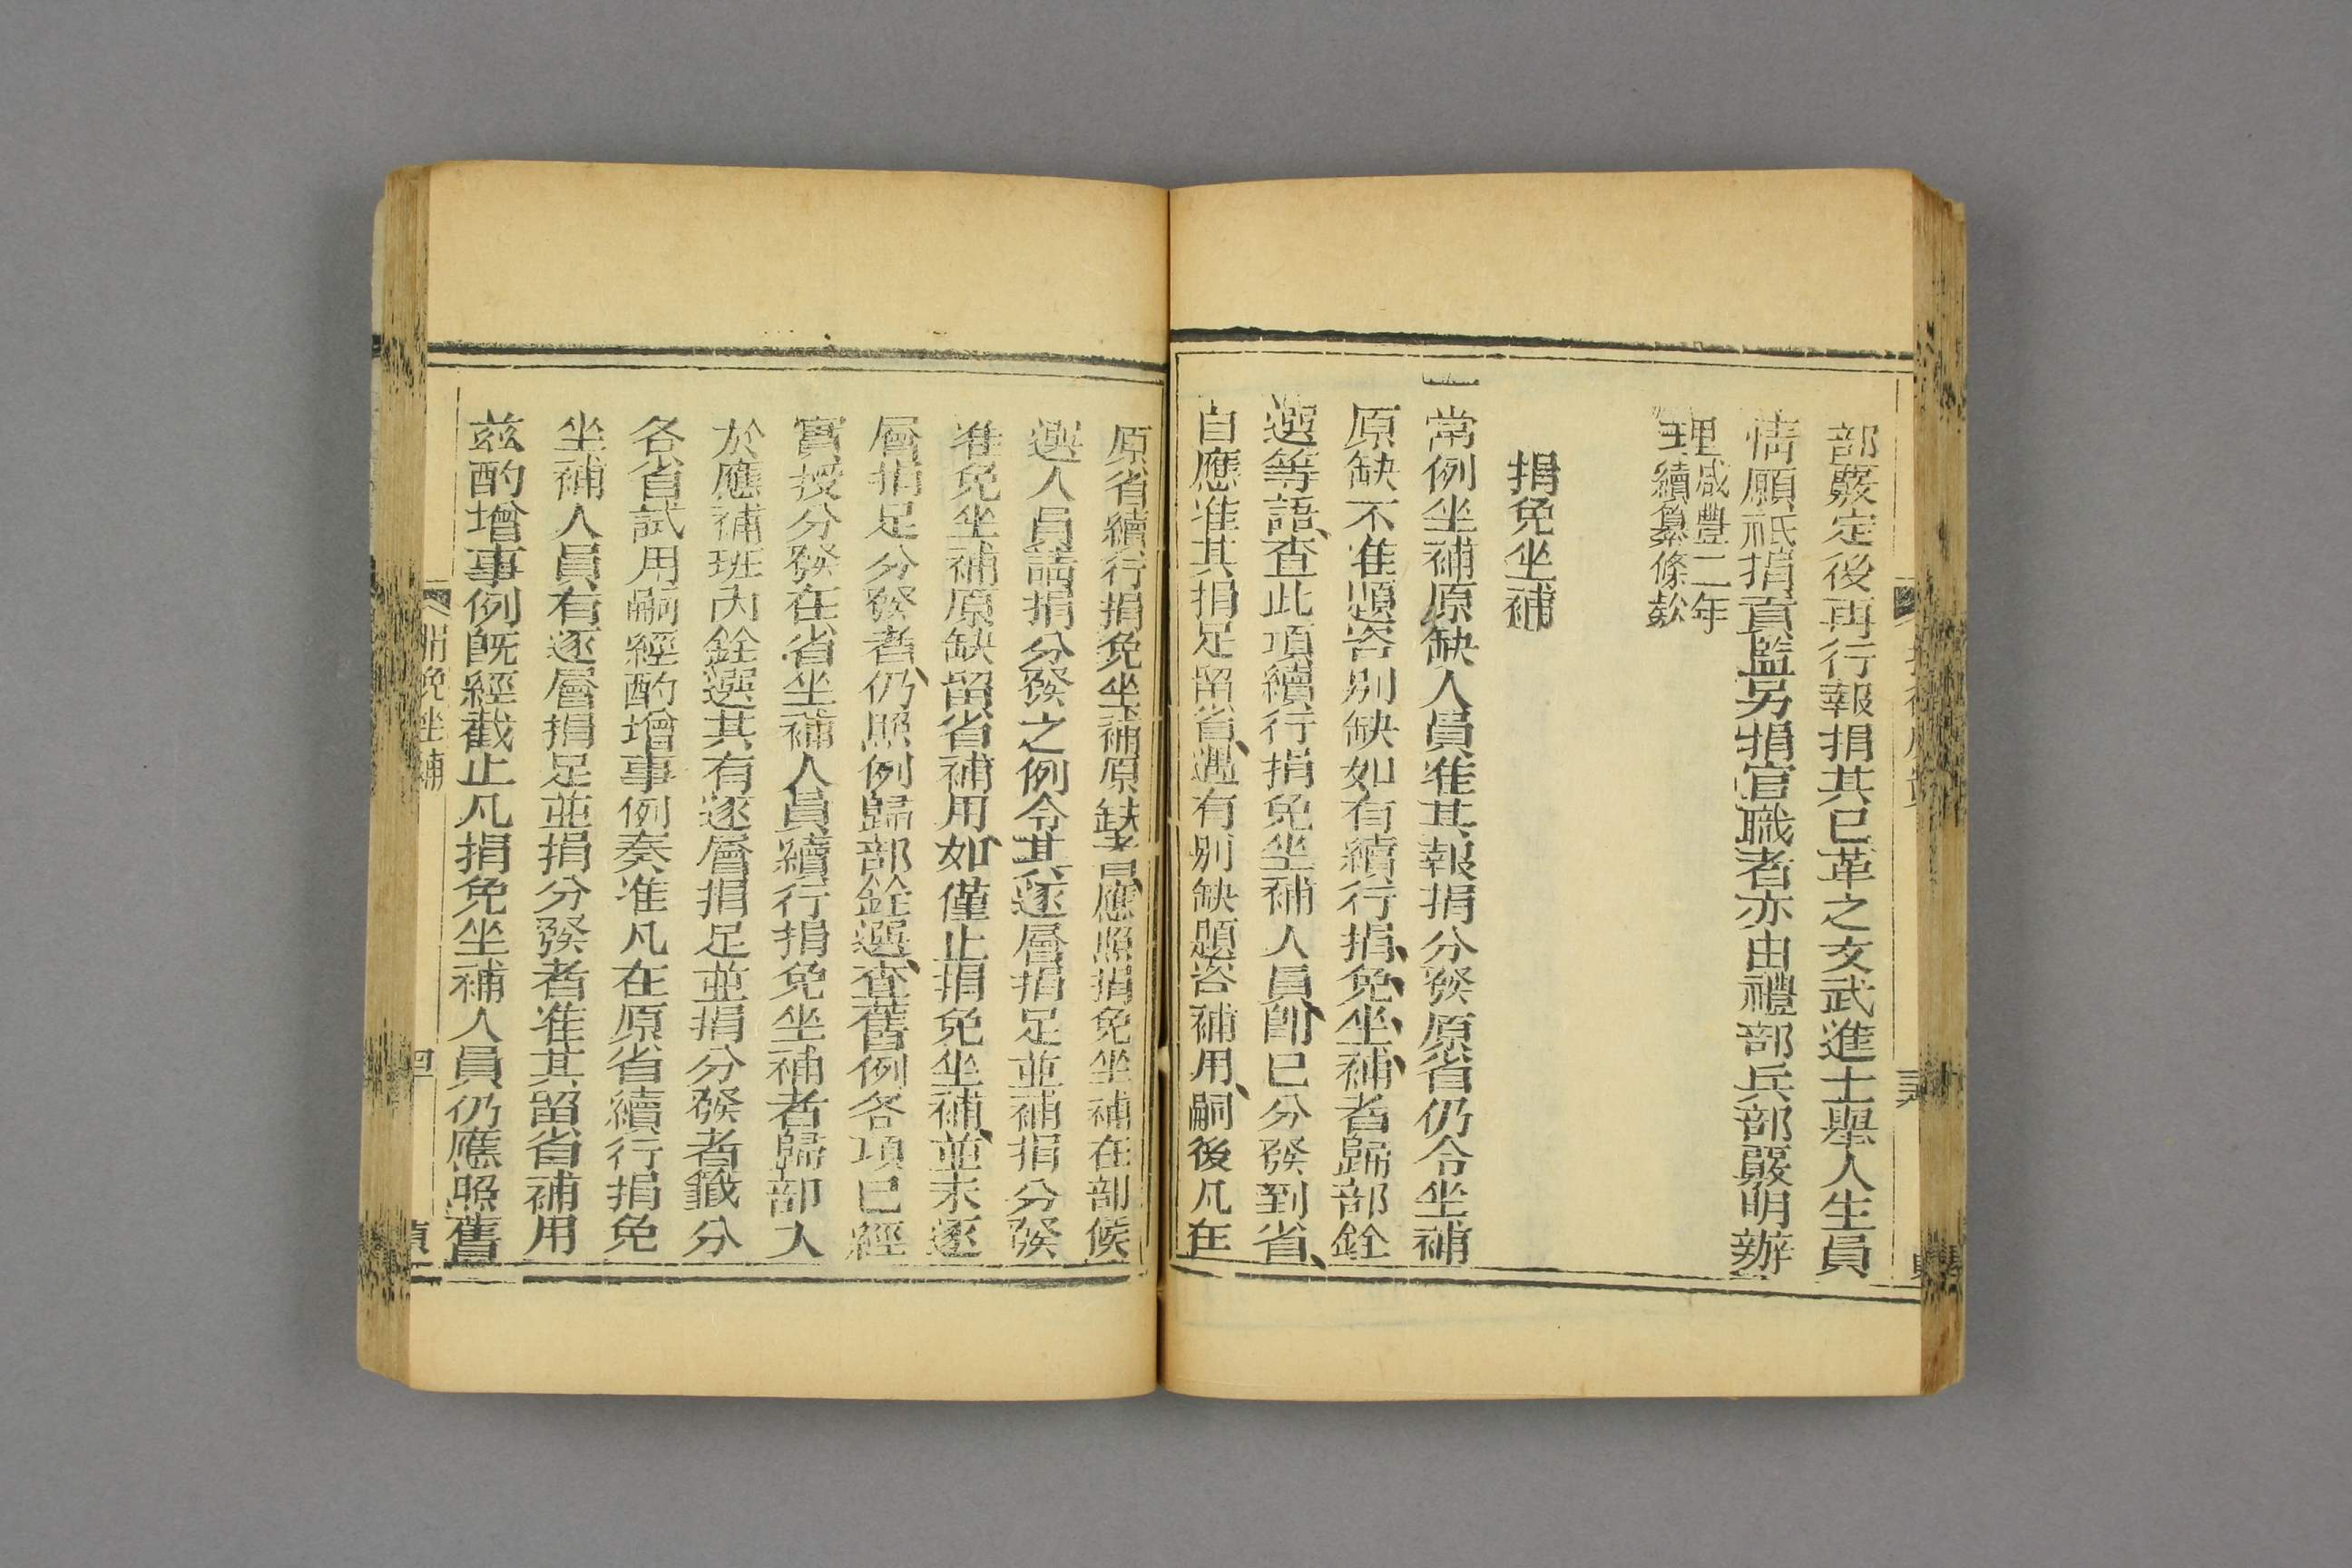 部覈定後再行報捐其已革之文武進士舉人生員
情願祇捐貢監另捐官職者亦由禮部兵部覈明辦
理咸豐二年
續纂條款
捐免坐補
一常例坐補原缺人員准其報捐分發原省仍令坐補
原缺不准題咨別缺如有續行捐免坐補者歸部銓
選等語查此項續行捐免坐補人員卽已分發到省
自應准其捐足留省遇有別缺題咨補用嗣後凡在
原省續行捐免坐補原缺者應照捐免坐補在部候
選人員請捐分發之例令其逐層捐足並補捐分發
准免坐補原缺留省補用如僅止捐免坐補並未逐
層捐足分發者仍照例歸部銓選查舊例各項已經
實授分發在省坐補人員續行捐免坐補者歸部入
於應補班內銓選其有逐層捐足並捐分發者籤分
各省試用嗣經酌增事例奏准凡在原省續行捐免
坐補人員有逐層捐足並捐分發者准其留省補用
茲酌增事例旣經截止凡捐免坐補人員仍應照舊
捐免坐補